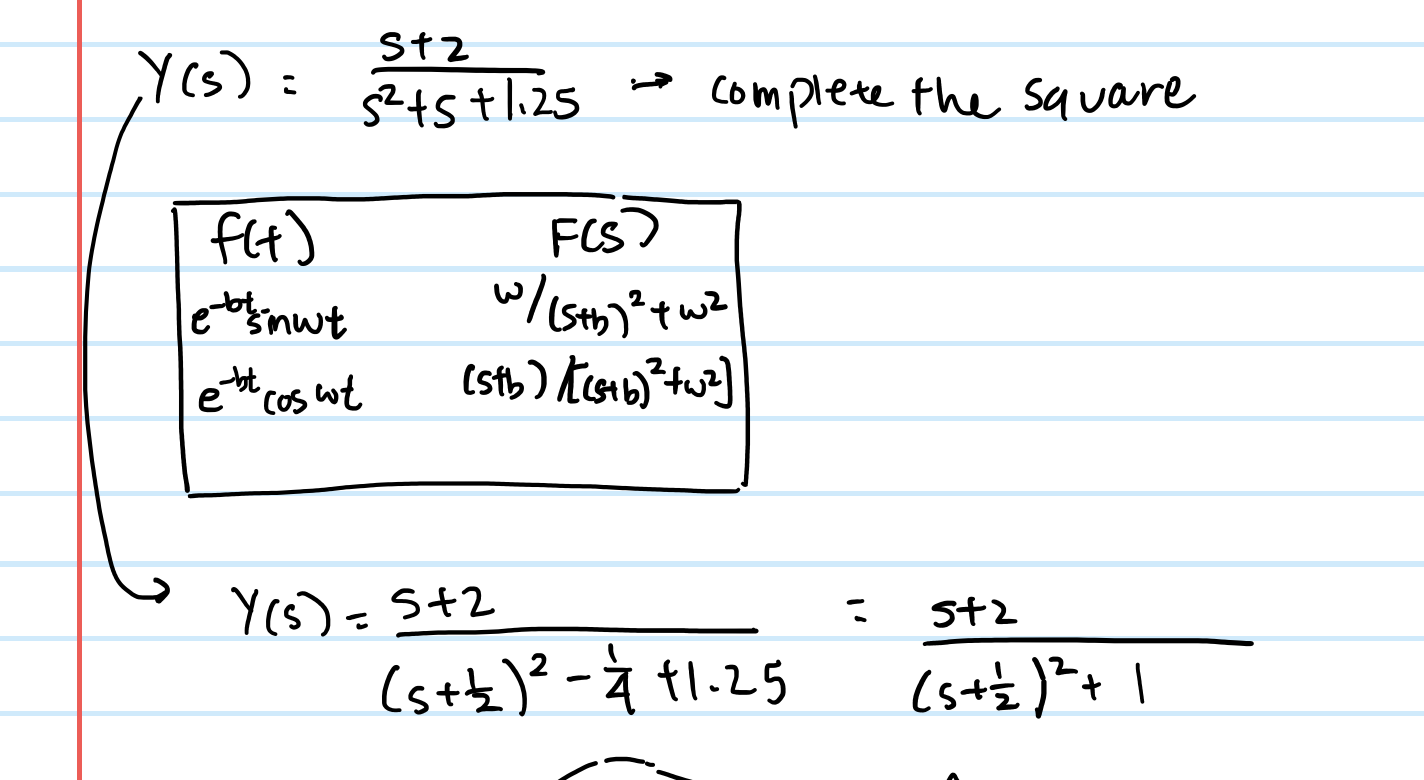 Y(s) = (s+2)/(s²+s+1.25) → complete the square
f(t) F(s)
e^-bt sinwt w/(s+b)²+w²
e^-bt cos wt (s+b)/[(s+b)²+w²]
Y(s) = (s+2)/((s+1/2)² - 1/4 + 1.25) = (s+2)/((s+1/2)² + 1)